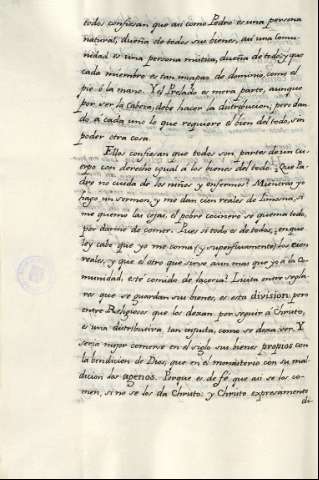 todos confiesan que asi como Pedro es una persona
natural, dueña de todos sus bienes, asi una Comu-
nidad es una persona mistica, dueña de todo; y que
cada miembro es tan incapaz de dominio, como el
pie ó la mano. Y el Prelado es mera parte, aunque
por ser la Cabeza, debe hacer la distribucion; pero dan-
do a cada uno lo que requiere el bien del todo, sin
poder otra cosa.
Ellos confiesan que todos son partes de un Cu-
erpo con derecho igual a los bienes del todo: ¿Que Pa-
dre no cuida de los niños y enfermos? Mientras yo
hago un sermon, y me dan cien reales de limosna, si
me quemo las cejas, el pobre cocinero se quema todo,
por darme de comer. Pues si todo es de todos, ¿en que
ley cabe que yo me coma (y superfluamente) los cien
reales, y que el otro que sirve aun mas que yo á la Co-
munidad, esté comido de laceria? Licita entre segla-
res que se guardan sus bienes, es esta division; pero
entre Religiosos que los dexan por seguir a Christo,
es una distributiva tan injusta, como se dexa ver. Y
seria mejor comerse en el siglo sus bienes propios con
la bendicion de Dios, que en el monasterio con su mal-
dicion los agenos. Porque es de fé, que asi se los co-
men, si no se los da Christo: y Christo expresamente
di-